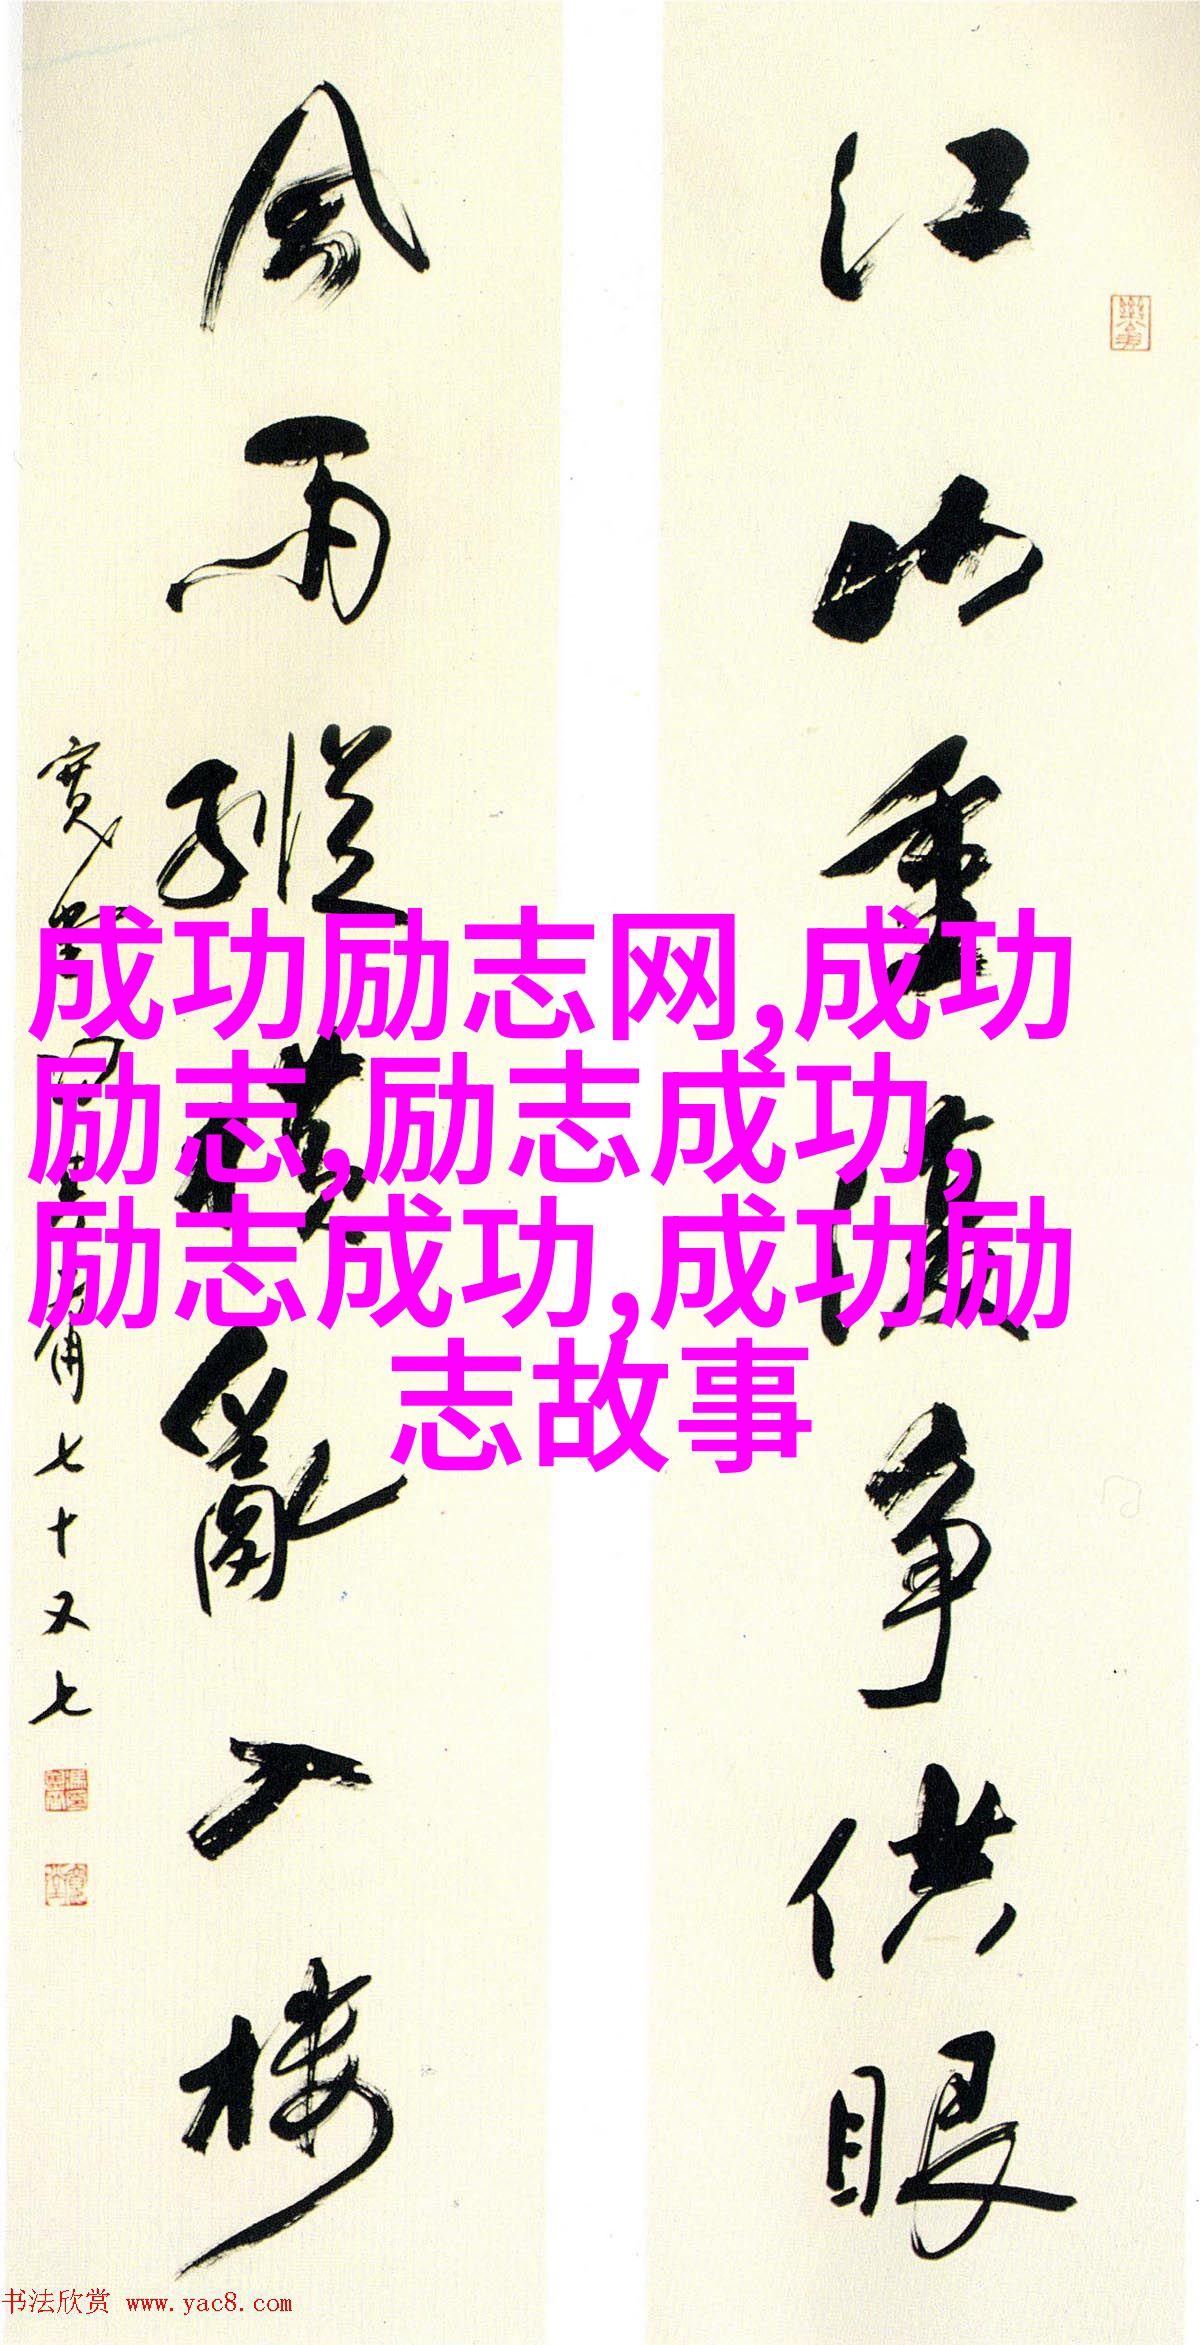 江山重复争供眼
风雨纵横乱入楼
七十又七
成功励志网,成功
励志,励志成功,
励志成功,成功励
志故事
书法欣赏 www.yac8.com